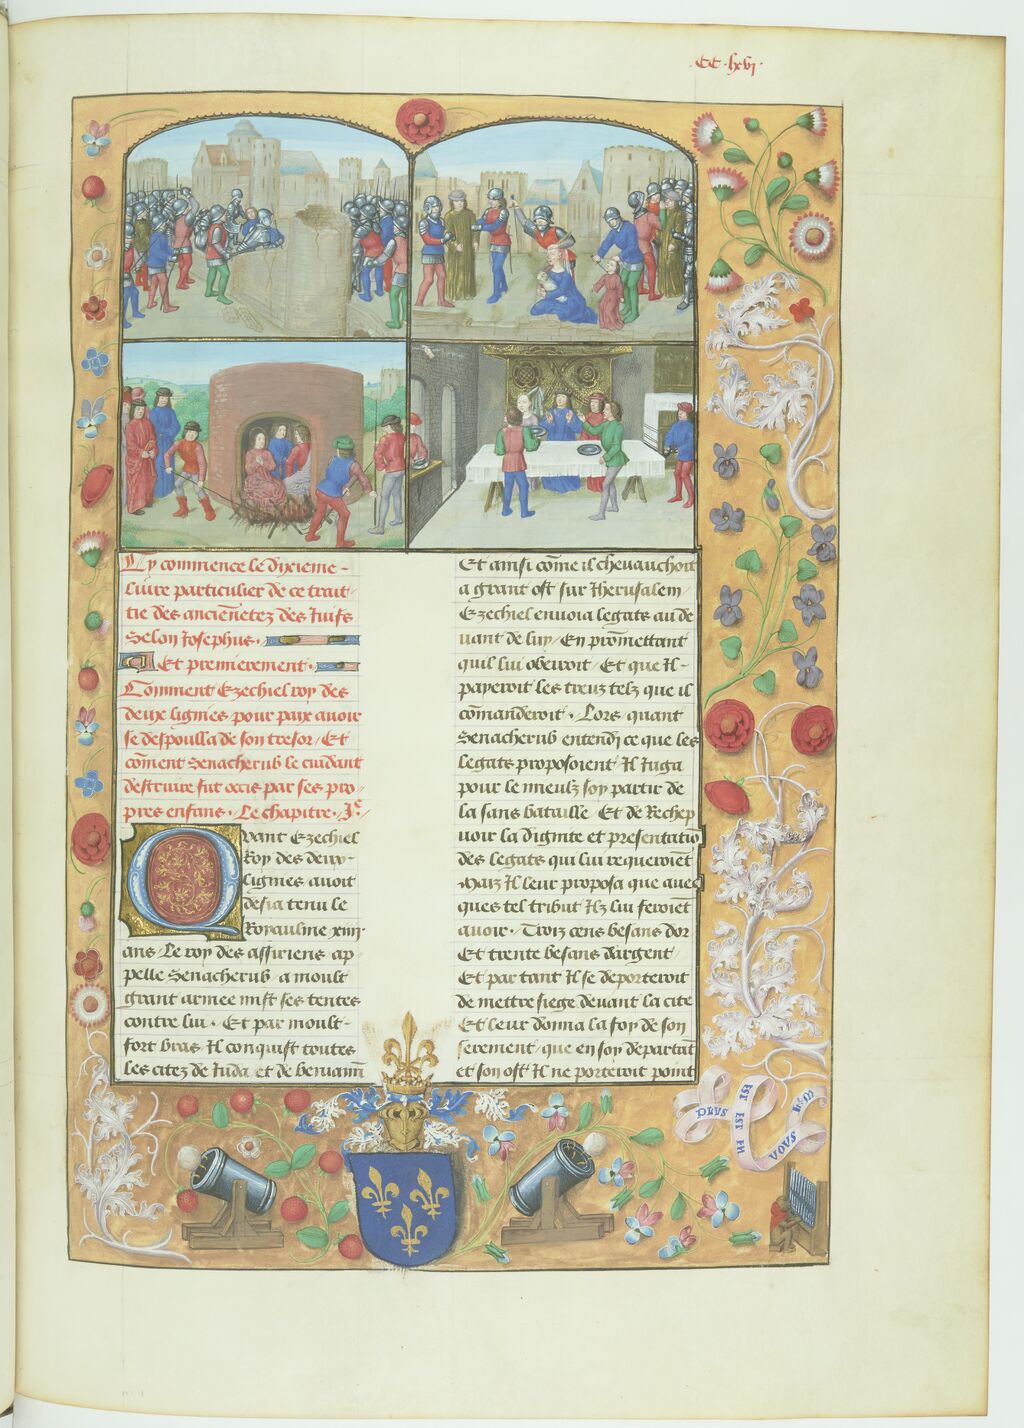 CC·lxvi·
Cy commence le dixieme
liure particulier de ce trait
tie des anciēnetez des Juifs
selon Josephus.
Et premierement.
Comment Ezechiel roy des
deux lignies pour paix auoir
se despoulla de son tresor / Et
cōment Senacherub le cuidant
destruire fut occis par ses pro
pres enfans. Le chapitre. Je.
Quant Ezechiel
Roy des deux
lignies auoit
desia tenu le
Royaulme xiiii
ans / Le roy des assiriens ap
pelle Senacherub a moult
grant armee mist ses tentes
contre lui. Et par moult
fort bras Il conquist toutes
les citez de Juda et de beniamī
Et ainsi cōme il cheuauchoit
a grant ost sur Jherusalem /
Ezechiel enuoia legats au de
uant de luy / En promettant
quil lui obeiroit / Et que Il
payeroit les treuz telz que il
cōmanderoit. Lors quant
Senacherub entendi ce que les
legats proposoient Il Juga
pour le mieulz soy partir de
la sans bataille Et de Rechep
uoir la dignite et presentatiō
des legats qui lui requeroiēt
Maiz Il leur proposa que auec
ques tel tribut Ilz lui feroiēt
auoir. Troiz cens besans dor
Et trente besans dargent
Et par tant Il se deporteroit
de mettre siege deuant la cite
Et leur donna la foy de son
serement / que en soy departāt
et son ost Il ne porteroit point
PLVS
EST EN
VOVS